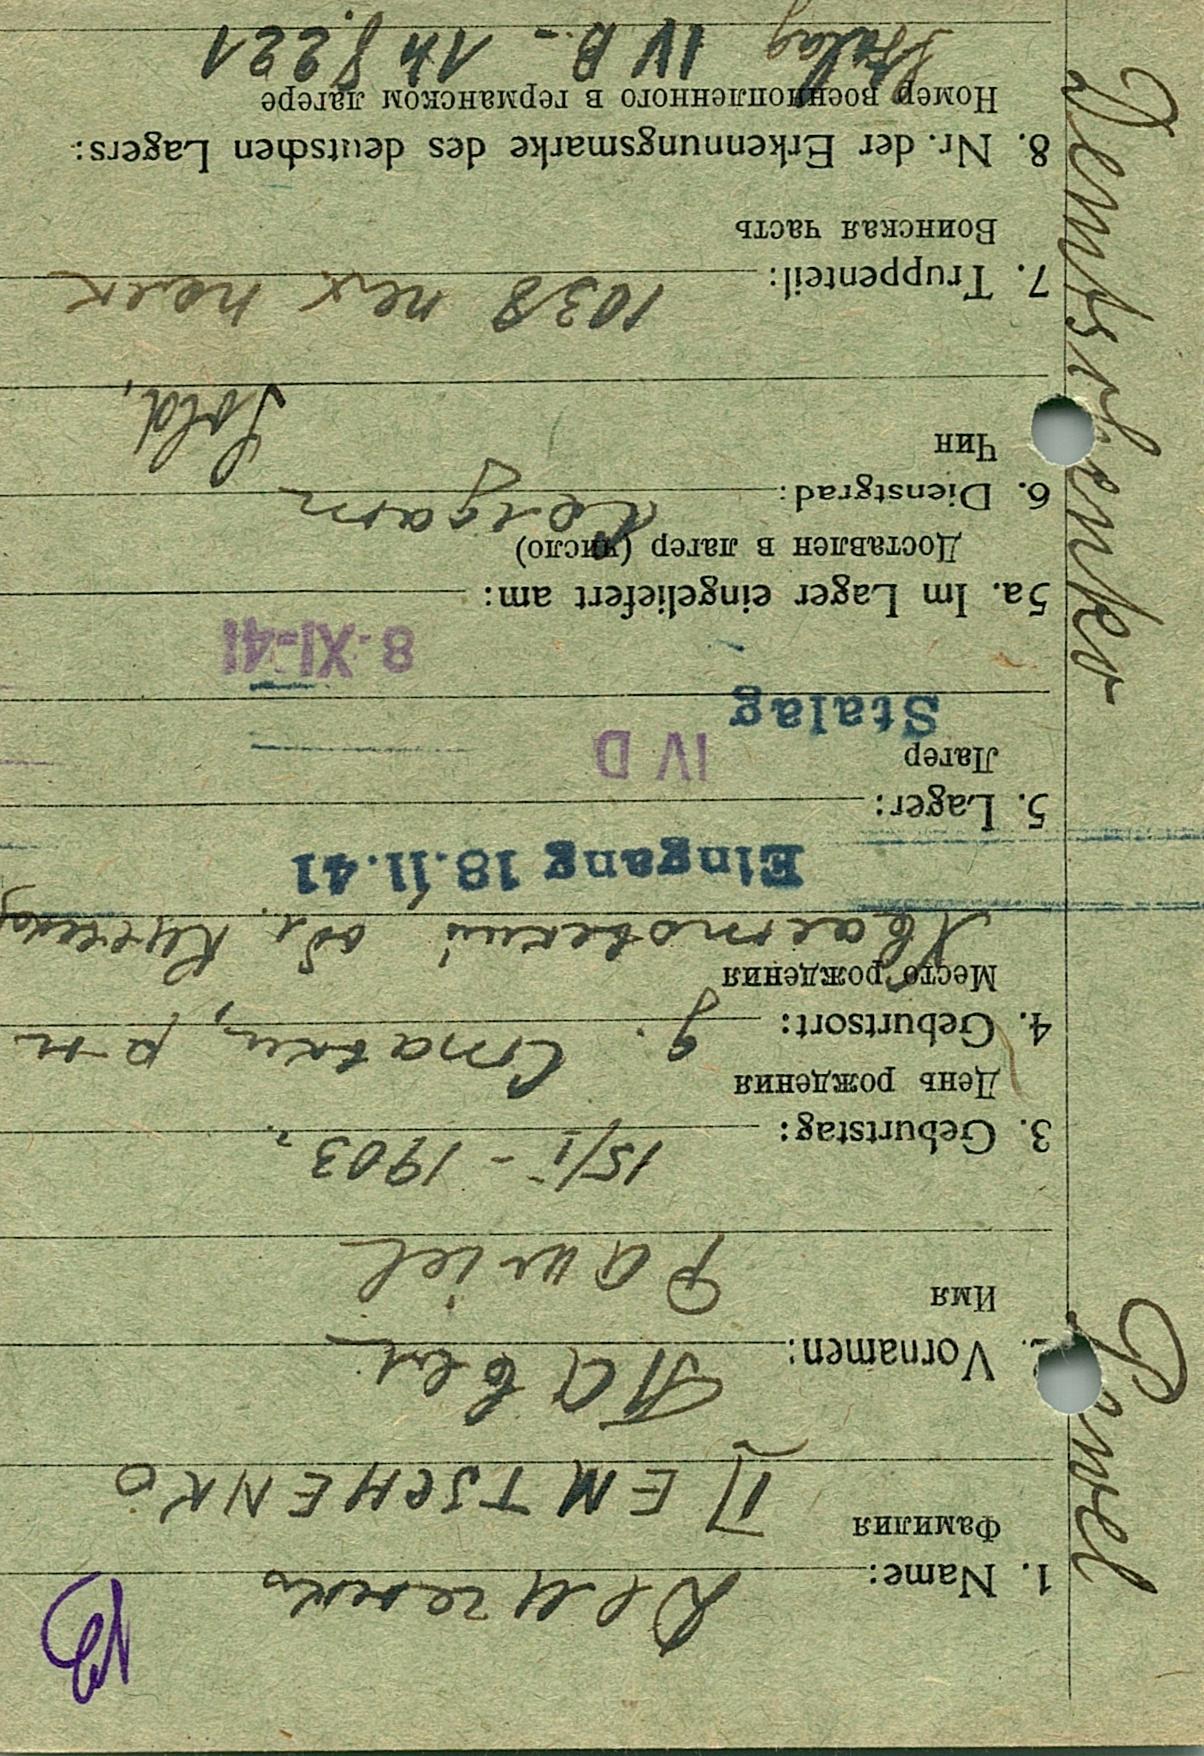 Demtschenko Pawel
1. Name: Демченко
Фамилия
DEMTSCHENKO
2. Vornamen: Павел
Имя
Pawiel
3. Geburtstag: 15/I - 1903 г.
День рождения
4. Geburtsort: д. Ставки, р-н
Место рождения
Хвастовский обл. Киевская
Eingang 18.11.41
5. Lager:
Лагер
IV D
Stalag
8-XI-41
5a. Im Lager eingeliefert am:
Доставлен в лагер (число)
6. Dienstgrad: Солдат
Чин
Sold.
7. Truppenteil: 1038 пех полк
Воинская часть
8. Nr. der Erkennungsmarke des deutschen Lagers:
Номер военнопленного в германском лагере
Stalag IV B - 148221